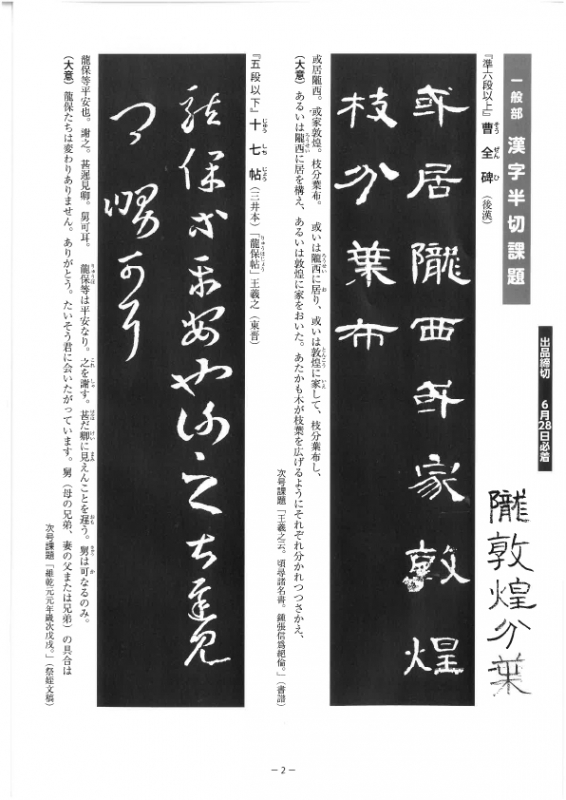 一般部 漢字半切課題
出品締切 6月28日必着
隴敦煌分葉
『準六段以上』曹全碑（後漢）
そうぜんひ
或居隴西或家敦煌
枝分葉布
或居隴西。或家敦煌。枝分葉布。 或いは隴西に居り、或いは敦煌に家して、枝分葉布し、
（大意）あるいは隴西に居を構え、あるいは敦煌に家をおいた。あたかも木が枝葉を広げるようにそれぞれ分かれつつさかえ、
次号課題「王羲之云。頃尋諸名書。鍾張信為絶倫。」（書譜）
『五段以下』十七帖（三井本）「龍保帖」王羲之（東晋）
じゅうしちじょう
りゅうほじょう
龍保等平安也謝之甚遅見
卿舅可耳
龍保等平安也。謝之。甚遅見卿。舅可耳。 龍保等は平安なり。之を謝す。甚だ卿に見えんことを遅う。舅は可なるのみ。
（大意）龍保たちは変わりありません。ありがとう。たいそう君に会いたがっています。舅（母の兄弟、妻の父または兄弟）の具合は
次号課題「維乾元元年歳次戊戌。」（祭姪文稿）
－2－